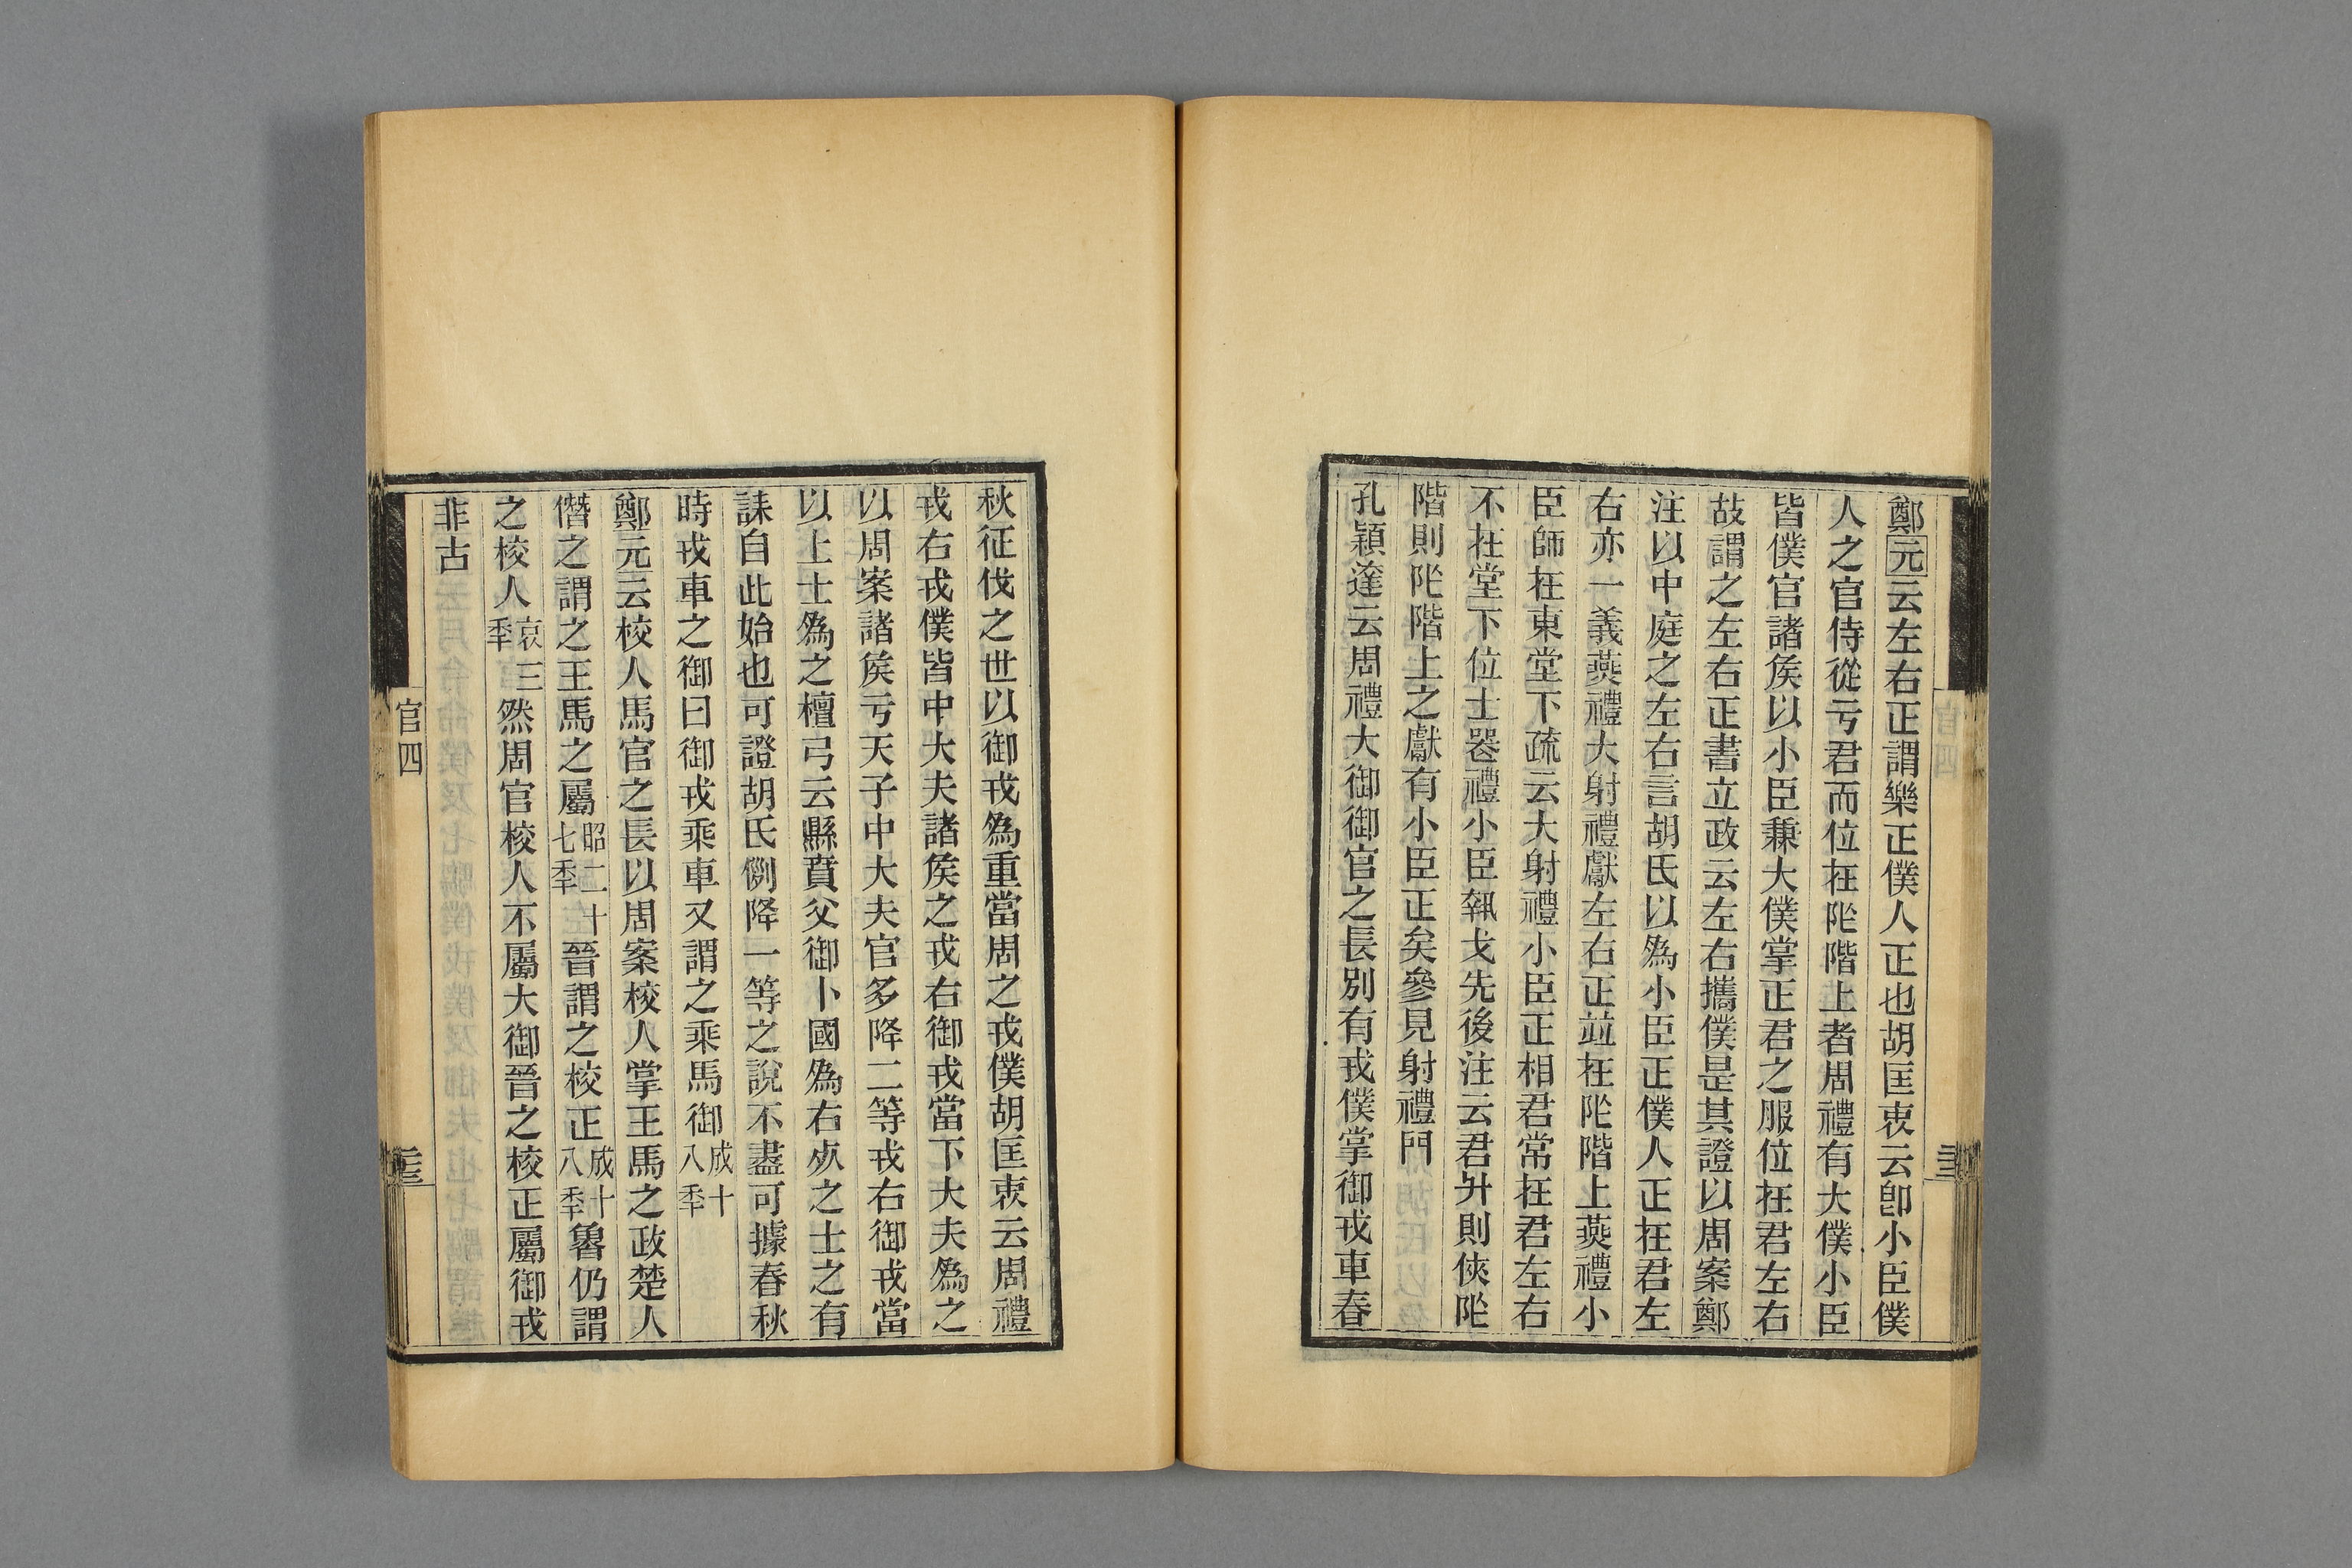 鄭元云左右正謂樂正僕人正也胡匡衷云卽小臣僕
人之官侍從亏君而位在阼階上者周禮有大僕小臣
皆僕官諸矦以小臣兼大僕掌正君之服位在君左右
故謂之左右正書立政云左右攜僕是其證以周案鄭
注以中庭之左右言胡氏以爲小臣正僕人正在君左
右亦一義燕禮大射禮獻左右正竝在阼階上燕禮小
臣師在東堂下疏云大射禮小臣正相君常在君左右
不在堂下位士喪禮小臣執戈先後注云君升則俠阼
階則阼階上之獻有小臣正矣參見射禮門
孔穎達云周禮大御御官之長別有戎僕掌御戎車春
秋征伐之世以御戎爲重當周之戎僕胡匡衷云周禮
戎右戎僕皆中大夫諸矦之戎右御戎當下大夫爲之
以周案諸矦亏天子中大夫官多降二等戎右御戎當
以上士爲之檀弓云縣賁父御卜國爲右𣦸之士之有
誄自此始也可證胡氏例降一等之說不盡可據春秋
時戎車之御曰御戎乘車又謂之乘馬御成十八秊
鄭元云校人馬官之長以周案校人掌王馬之政楚人
僭之謂之王馬之屬昭二十七秊晉謂之校正成十八秊魯仍謂
之校人哀三秊然周官校人不屬大御晉之校正屬御戎
非古
官四